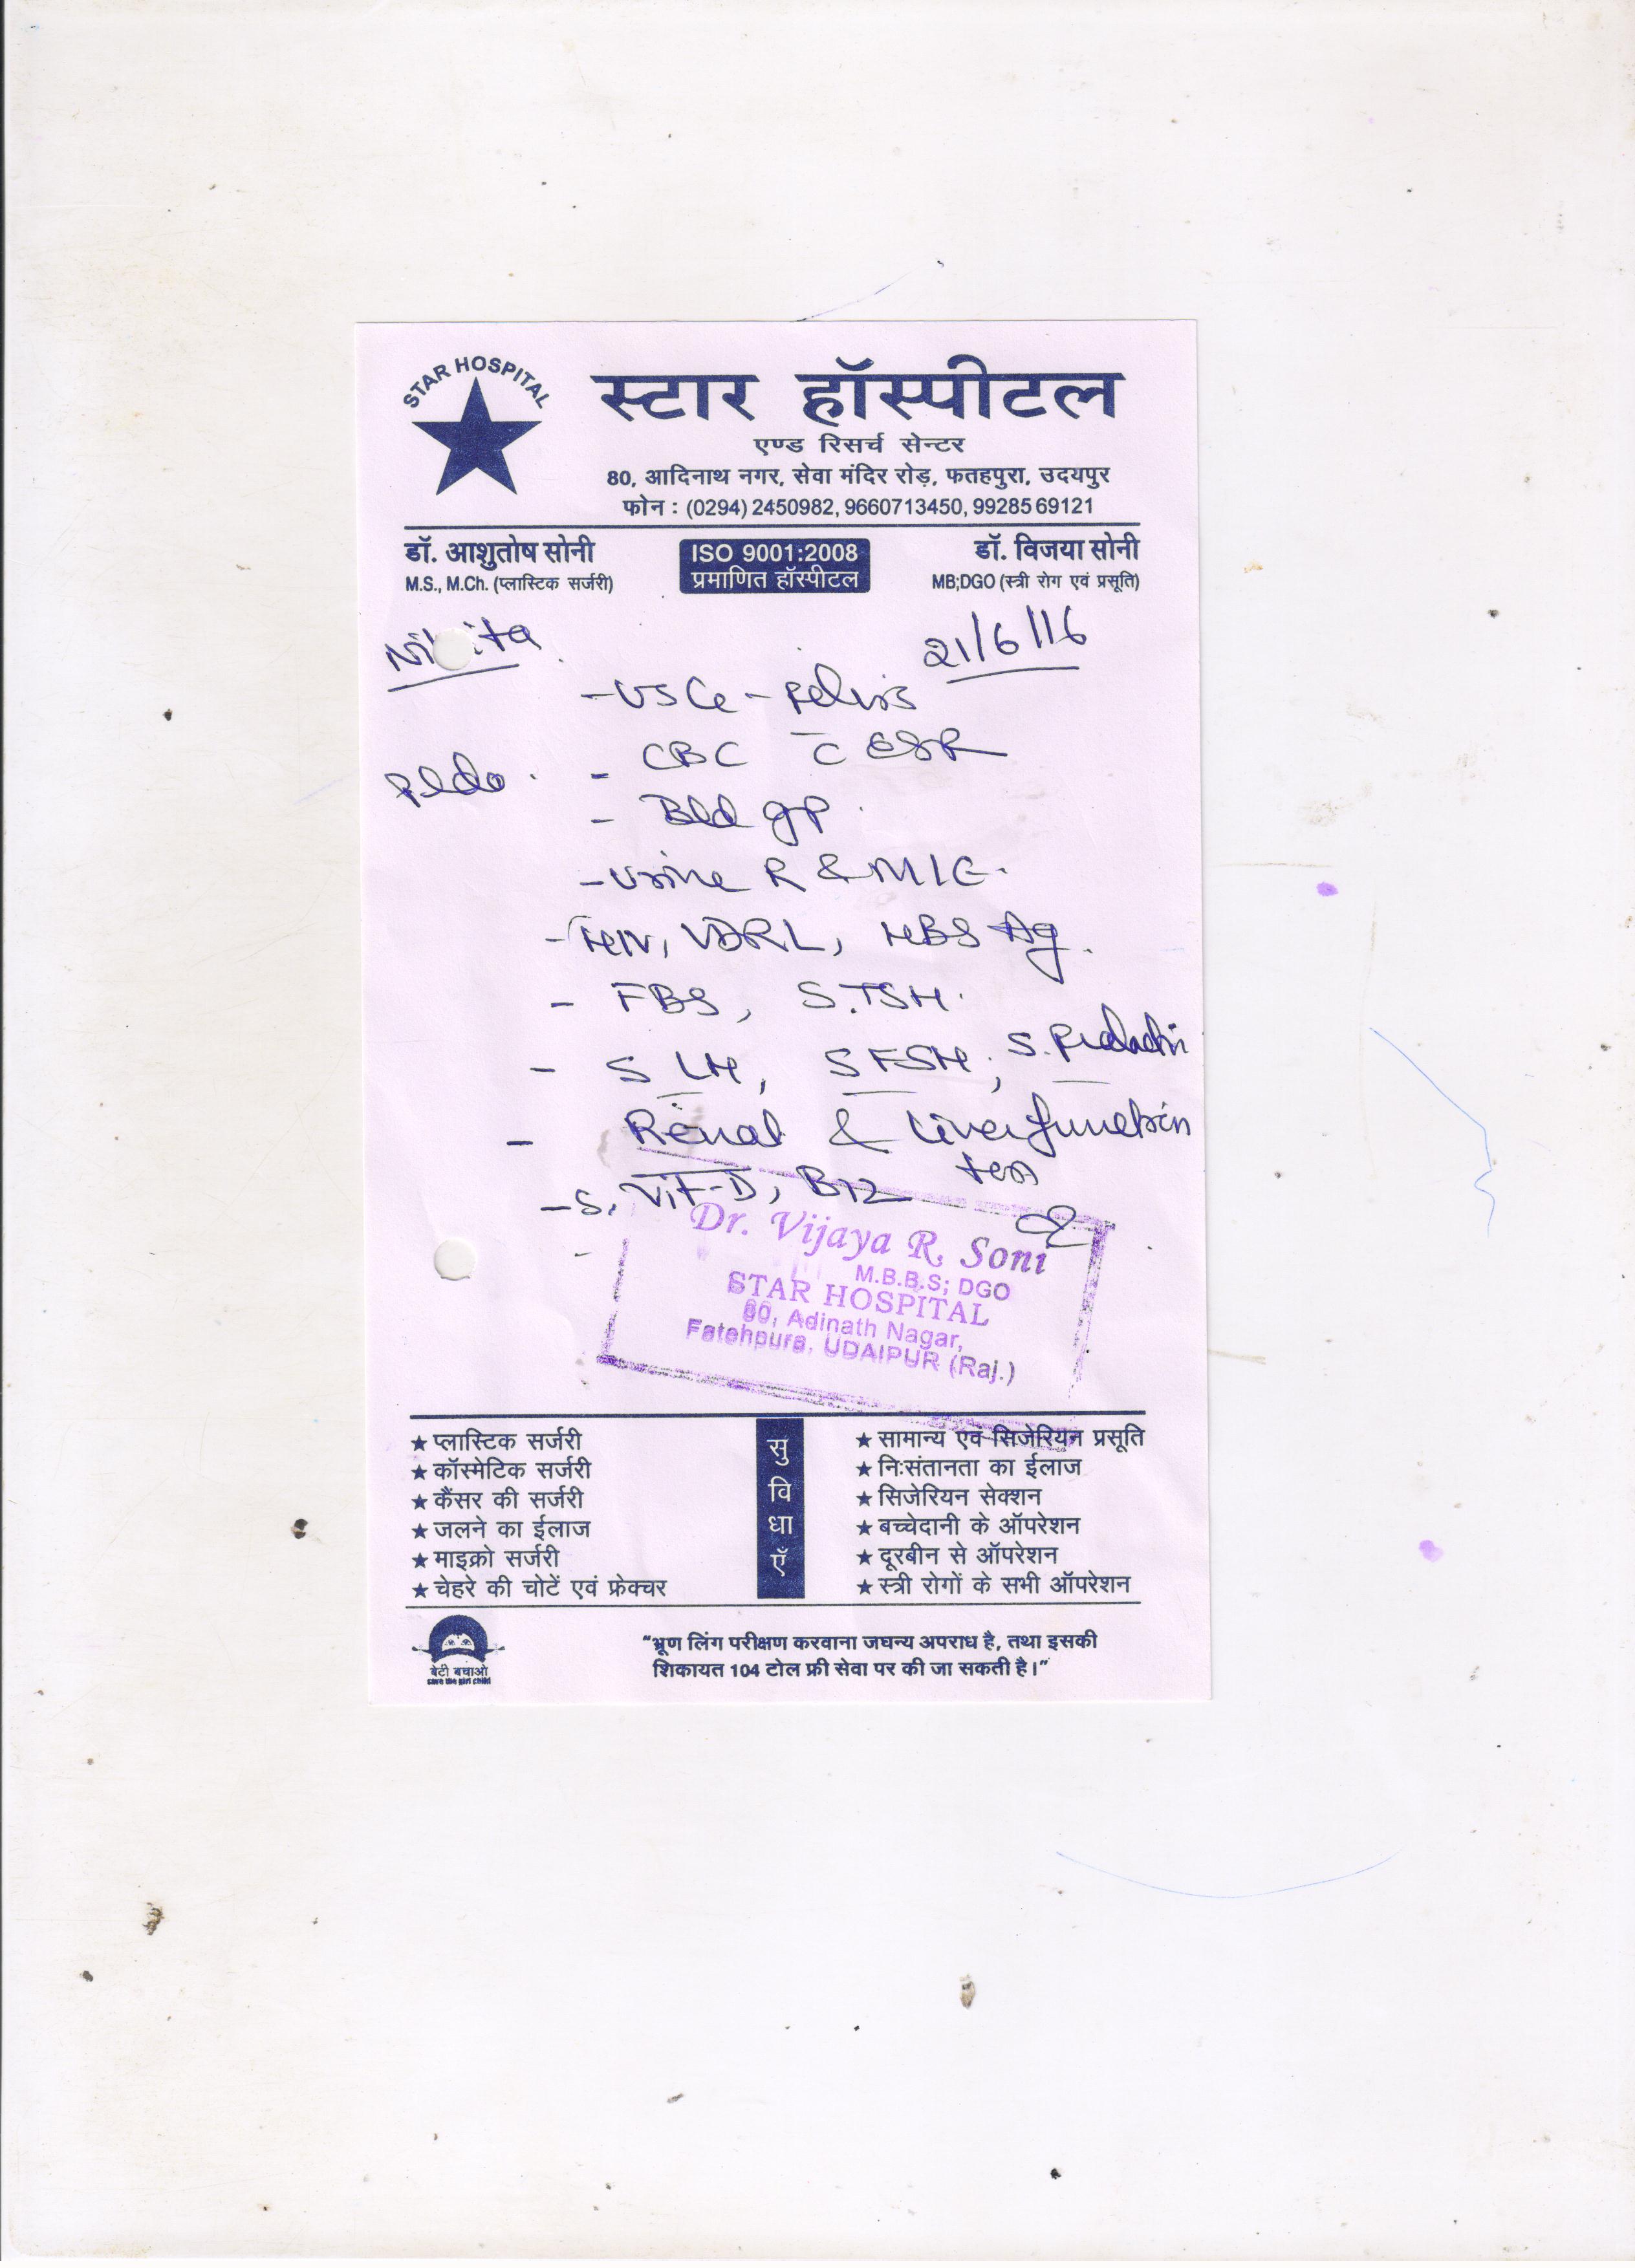 STAR HOSPITAL
स्टार हॉस्पीटल
एण्ड रिसर्च सेन्टर
80, आदिनाथ नगर, सेवा मंदिर रोड़, फतहपुरा, उदयपुर
फोन : (0294) 2450982, 9660713450, 9928569121
डॉ. आशुतोष सोनी
M.S., M.Ch. (प्लास्टिक सर्जरी)
ISO 9001:2008
प्रमाणित हॉस्पीटल
डॉ. विजया सोनी
MB;DGO (स्त्री रोग एवं प्रसूति)
21/6/16
- Pelvis
- CBC C ESR
Pldo
- Bld gp.
- Urine R & M/C.
- HIV, VDRL, HBS Ag.
- FBS, S.TSH.
- S LH, S FSH, S. Prolactin
- Renal & Liver function
test
- S. Vit-D, B12
Dr. Vijaya R. Soni
M.B.B.S; DGO
STAR HOSPITAL
80, Adinath Nagar,
Fatehpura, UDAIPUR (Raj.)
सुविधाएँ
★ प्लास्टिक सर्जरी
★ कॉस्मेटिक सर्जरी
★ कैंसर की सर्जरी
★ जलने का ईलाज
★ माइक्रो सर्जरी
★ चेहरे की चोटें एवं फ्रेक्चर
★ सामान्य एवं सिजेरियन प्रसूति
★ निःसंतानता का ईलाज
★ सिजेरियन सेक्शन
★ बच्चेदानी के ऑपरेशन
★ दूरबीन से ऑपरेशन
★ स्त्री रोगों के सभी ऑपरेशन
बेटी बचाओ
save the girl child
“भ्रूण लिंग परीक्षण करवाना जघन्य अपराध है, तथा इसकी
शिकायत 104 टोल फ्री सेवा पर की जा सकती है।”